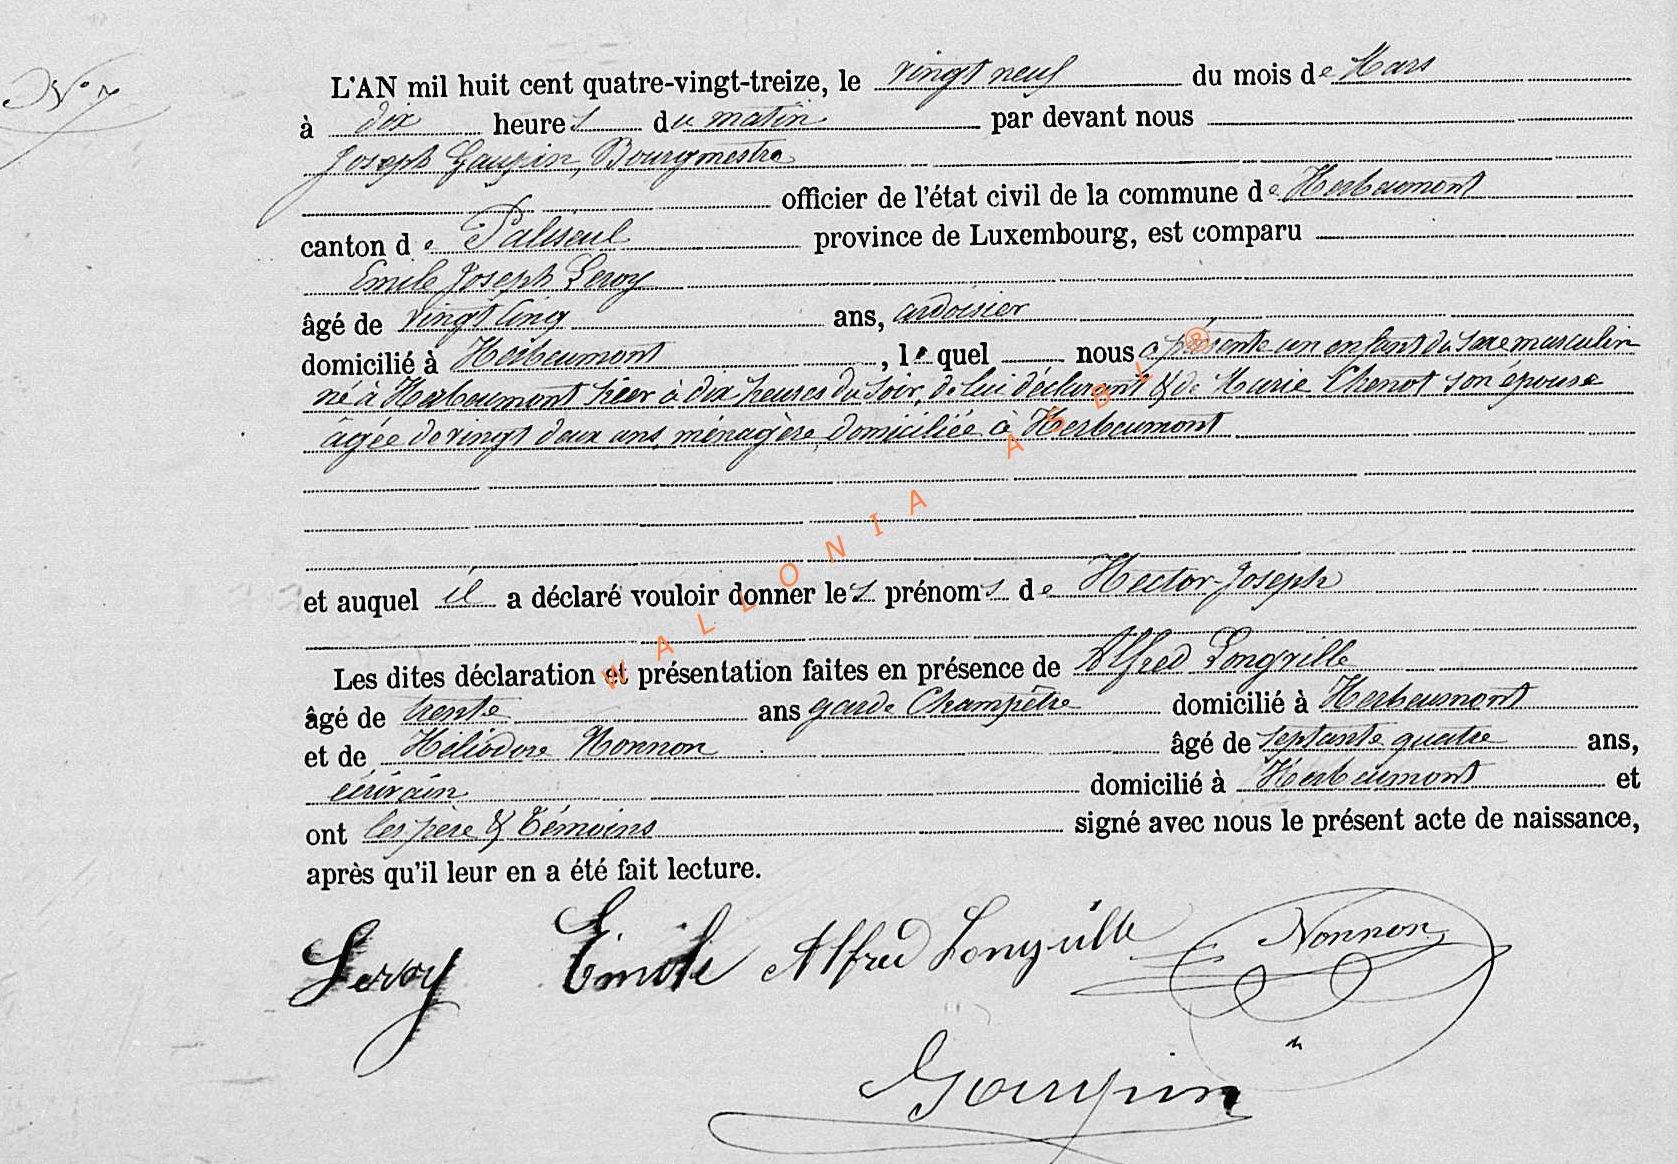 N° 7
L'AN mil huit cent quatre-vingt-treize, le vingt neuf du mois de Mars
à dix heures du matin par devant nous
Joseph Gaupin, Bourgmestre
officier de l'état civil de la commune de Herbeumont
canton de Paliseul province de Luxembourg, est comparu
Emile Joseph Leroy
âgé de vingt cinq ans, ardoisier
domicilié à Herbeumont, lequel nous a présenté un enfant du sexe masculin
né à Herbeumont hier à dix heures du soir, de lui déclarant & de Marie Chenot son épouse
âgée de vingt deux ans, ménagère, domiciliée à Herbeumont
et auquel il a déclaré vouloir donner les prénoms de Hector-Joseph
Les dites déclaration et présentation faites en présence de Alfred Longville
âgé de trente ans garde Champêtre domicilié à Herbeumont
et de Héliodore Nonnon âgé de septante quatre ans,
écrivain domicilié à Herbeumont et
ont les père & Témoins signé avec nous le présent acte de naissance,
après qu'il leur en a été fait lecture.
Leroy Emile Alfred Longville Nonnon
Gaupin
WALLONIA ASBL ®